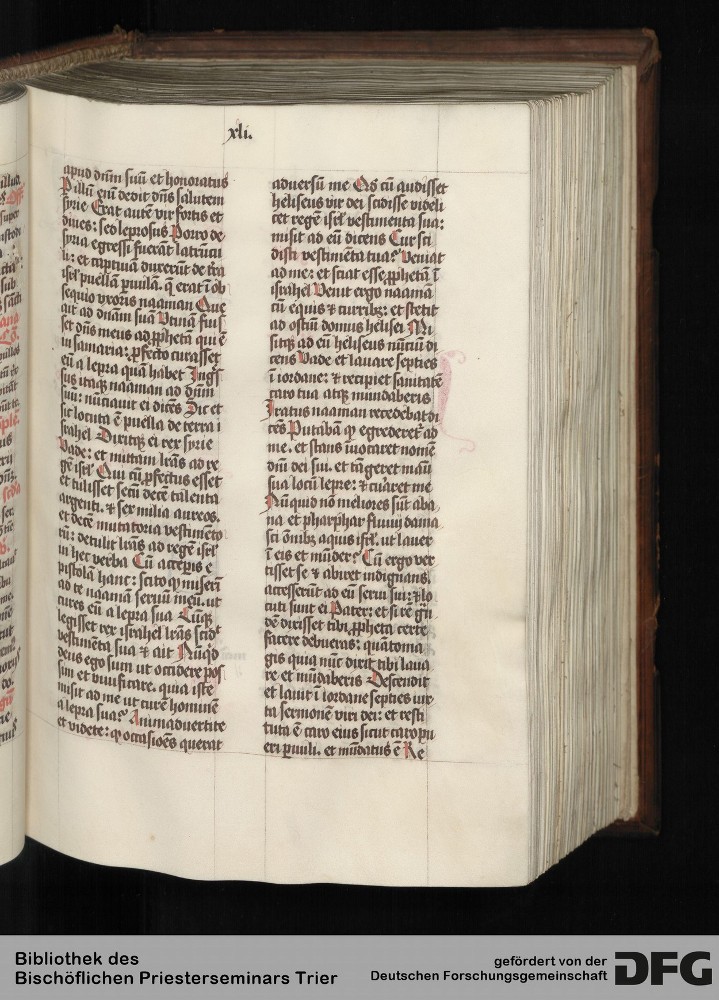 xli.
apud dnm̄ suū et honoratus
P illū enī dedit dn̄s salutem
syrie Erat autē vir fortis et
diues: sed leprosus Porro de
syria egressi fuerāt latrūcu
li: et captiuā duxerūt de tra
isrl̄ puellā ꝑuulā. q̄ erat ī ob
sequio vxoris naaman Que
ait ad dnām suā Vtinā fuis
set dn̄s meus ad ꝓphetā qui ē
in samaria: ꝓfecto curasset
eū a lepra quā habet Ingr̄s
sus itaqꝫ naaman ad dnm̄
suū: nūciauit ei dicēs Sic et
sic locuta ē puella de terra i
srahel Dixitqꝫ ei rex syrie
Vade: et mittam lr̄as ad re
gē isrl̄ Qui cū ꝓfectus esset
et tulisset secū decē talenta
argenti. ⁊ sex milia aureos.
et decē mutatoria vestimēto
rū: detulit lr̄as ad regē isrl̄
in hec verba Cū acceꝑis e
pistolā hanc: scito qꝫ miserī
ad te naamā seruū meū. ut
cures eū a lepra sua Cūqꝫ
legisset rex israhel lr̄as scīd᷑
vestimēta sua ⁊ ait Nūq̄d
deus ego sum ut occidere pos
sim et viuificare. quia iste
misit ad me ut curē hominē
a lepra sua? Animaduertite
et videte: qꝫ occasioēs querat
aduersū me Qd̄ cū audisset
heliseus vir dei scidisse videli
cet regē isrl̄ vestimenta sua:
misit ad eū dicens Cur sci
disti vestimēta tua? Veniat
ad me: et sciat esse ꝓphetā ī
israhel Venit ergo naamā
cū equis ⁊ curribꝫ: et stetit
ad ostiū domus helisei Mi
sitqꝫ ad eū heliseus nūciū di
cens Vade et lauare septies
ī iordane: ⁊ recipiet sanitatē
caro tua atqꝫ mundaberis
Iratus naaman recedebat di
cēs Putabā qꝫ egrederet᷑ ad
me. et stans īuocaret nomē
dn̄i dei sui. et tāgeret manū
sua locū lepre: ⁊ curaret me
Nūquid nō meliores sūt aba
na et pharphar fluuij dama
sci om̄ibꝫ aquis isrl̄. ut lauer
ī eis et mūder? Cū ergo ver
tisset se ⁊ abiret indignans.
accesserūt ad eū serui sui: ⁊ lo
cuti sunt ei Pater: et si rē grā̄
dē dixisset tibi ꝓpheta certe
facere debueras: quātoma
gis quia nūc dixit tibi laua
re et mūdaberis Descendit
et lauit ī iordane septies iux
ta sermonē viri dei: et resti
tuta ē caro eius sicut caro pu
eri ꝑuuli. et mūdatus ē Re
Bibliothek des
Bischöflichen Priesterseminars Trier
gefördert von der
Deutschen Forschungsgemeinschaft
DFG